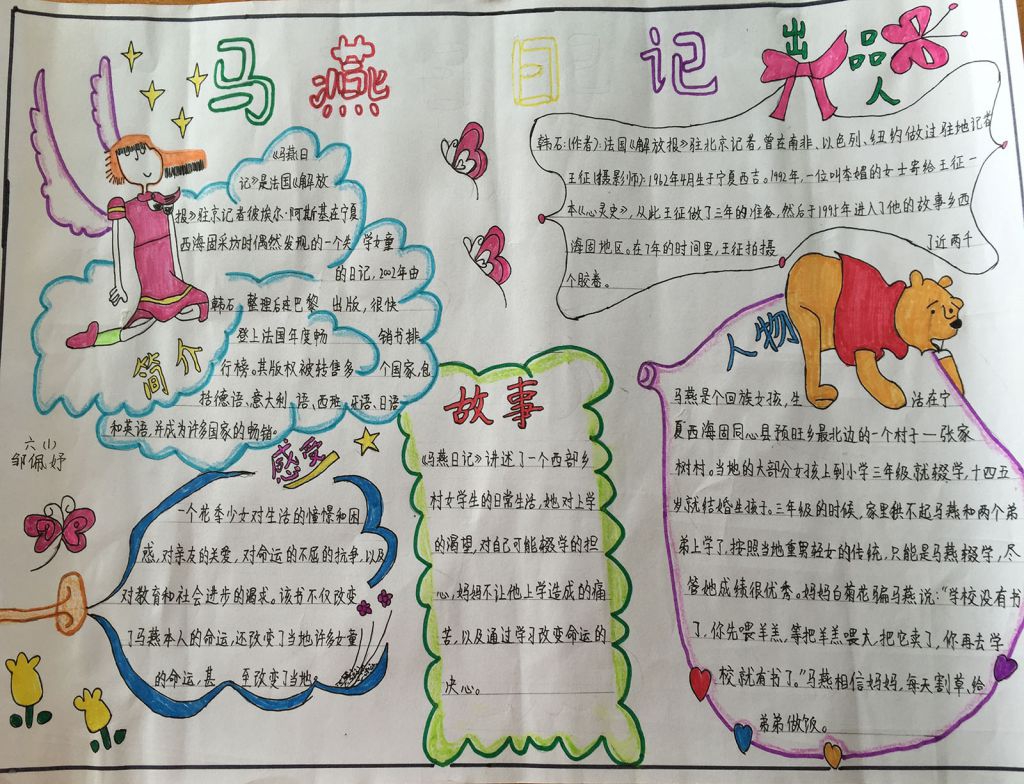 马燕日记
出品人
韩石:(作者):法国《解放报》驻北京记者,曾在南非、以色列、纽约做过驻地记者
王征(摄影师):1962年4月生于宁夏西吉。1992年,一位叫李媚的女士寄给王征一
本《心灵史》,从此王征做了三年的准备,然后于1995年进入了他的故事乡西
海固地区。在7年的时间里,王征拍摄了近两千
个胶卷。
《马燕日
记》是法国《解放
报》驻京记者彼埃尔·阿斯基在宁夏
西海固采坊时偶然发现的一个失学女童
的日记,2002年由
韩石整理后在巴黎出版,很快
登上法国年度畅销书排
行榜。其版权被转售多个国家,包
括德语、意大利语、西班牙语、日语
和英语,并成为许多国家的畅销。
简介
六(1)
邹佩妤
感受
一个花季少女对生活的憧憬和困
惑,对亲友的关爱,对命运的不屈的抗争,以及
对教育和社会进步的渴求。该书不仅改变
了马燕本人的命运,还改变了当地许多女童
的命运,甚至改变了当地。
故事
《马燕日记》讲述了一个西部乡
村女学生的日常生活,她对上学
的渴望,对自己可能辍学的担
心,妈妈不让他上学造成的痛
苦,以及通过学习改变命运的
决心。
人物
马燕是个回族女孩,生活在宁
夏西海固同心县预旺乡最北边的一个村子——张家
树村。当地的大部分女孩上到小学三年级就辍学,十四五
岁就结婚生孩子。三年级的时候,家里供不起马燕和两个弟
弟上学了,按照当地重男轻女的传统,只能是马燕辍学,尽
管她成绩很优秀。妈妈白菊花骗马燕说:“学校没有书
了,你先喂羊羔,等把羊羔喂大,把它卖了,你再去学
校就有书了。”马燕相信妈妈,每天割草,给
弟弟做饭。